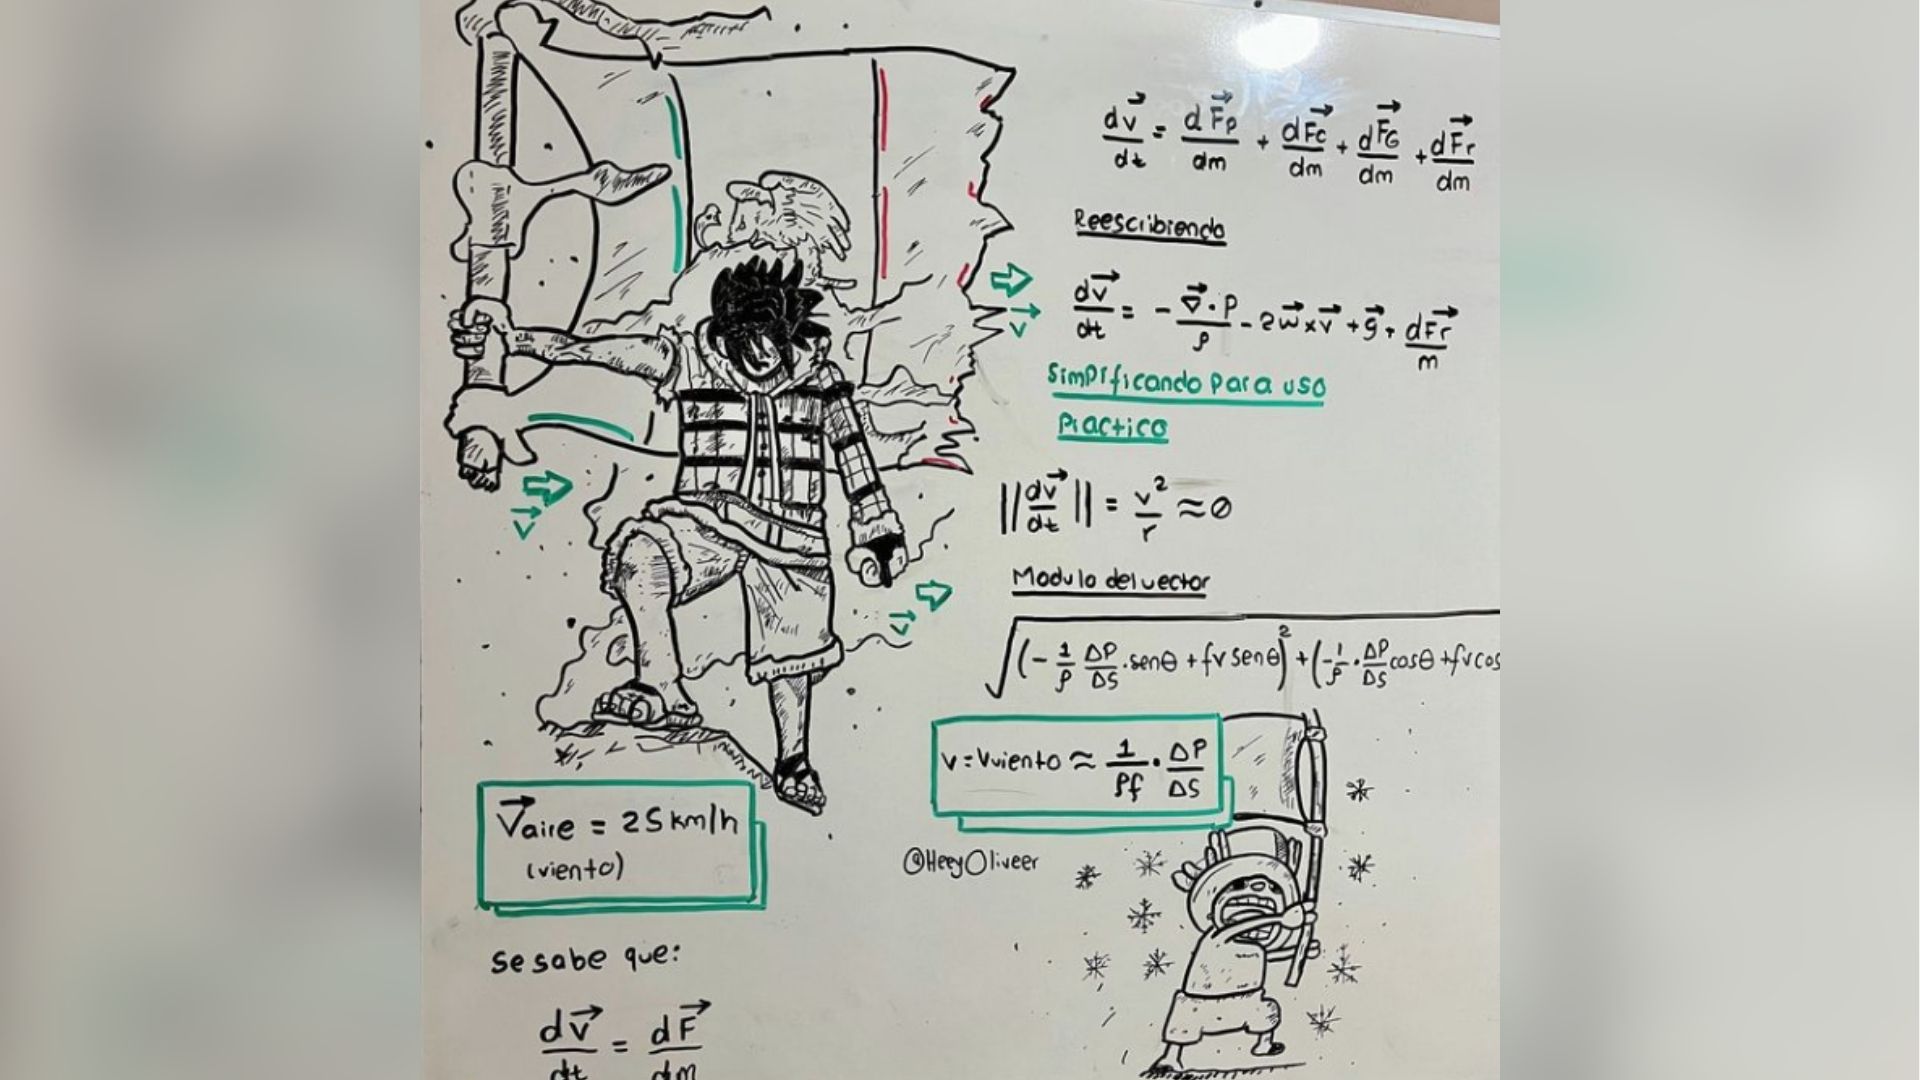 dv⃗/dt = dF⃗p/dm + dF⃗c/dm + dF⃗G/dm + dF⃗r/dm
Reescribiendo
dv⃗/dt = - ∇⃗·P/ρ - 2w⃗×v⃗ + g⃗ + dF⃗r/m
Simplificando para uso
Practico
||dv⃗/dt|| = v²/r ≈ 0
Modulo del vector
√(-1/ρ ΔP/ΔS·senθ + fv senθ)² + (-1/ρ·ΔP/ΔS cosθ + fv cos
v = Vviento ≈ 1/ρf · ΔP/ΔS
@HeeyOliveer
v⃗
v⃗
v⃗
V⃗aire = 25 km/h
(viento)
Se sabe que:
dv⃗/dt = dF⃗/dm